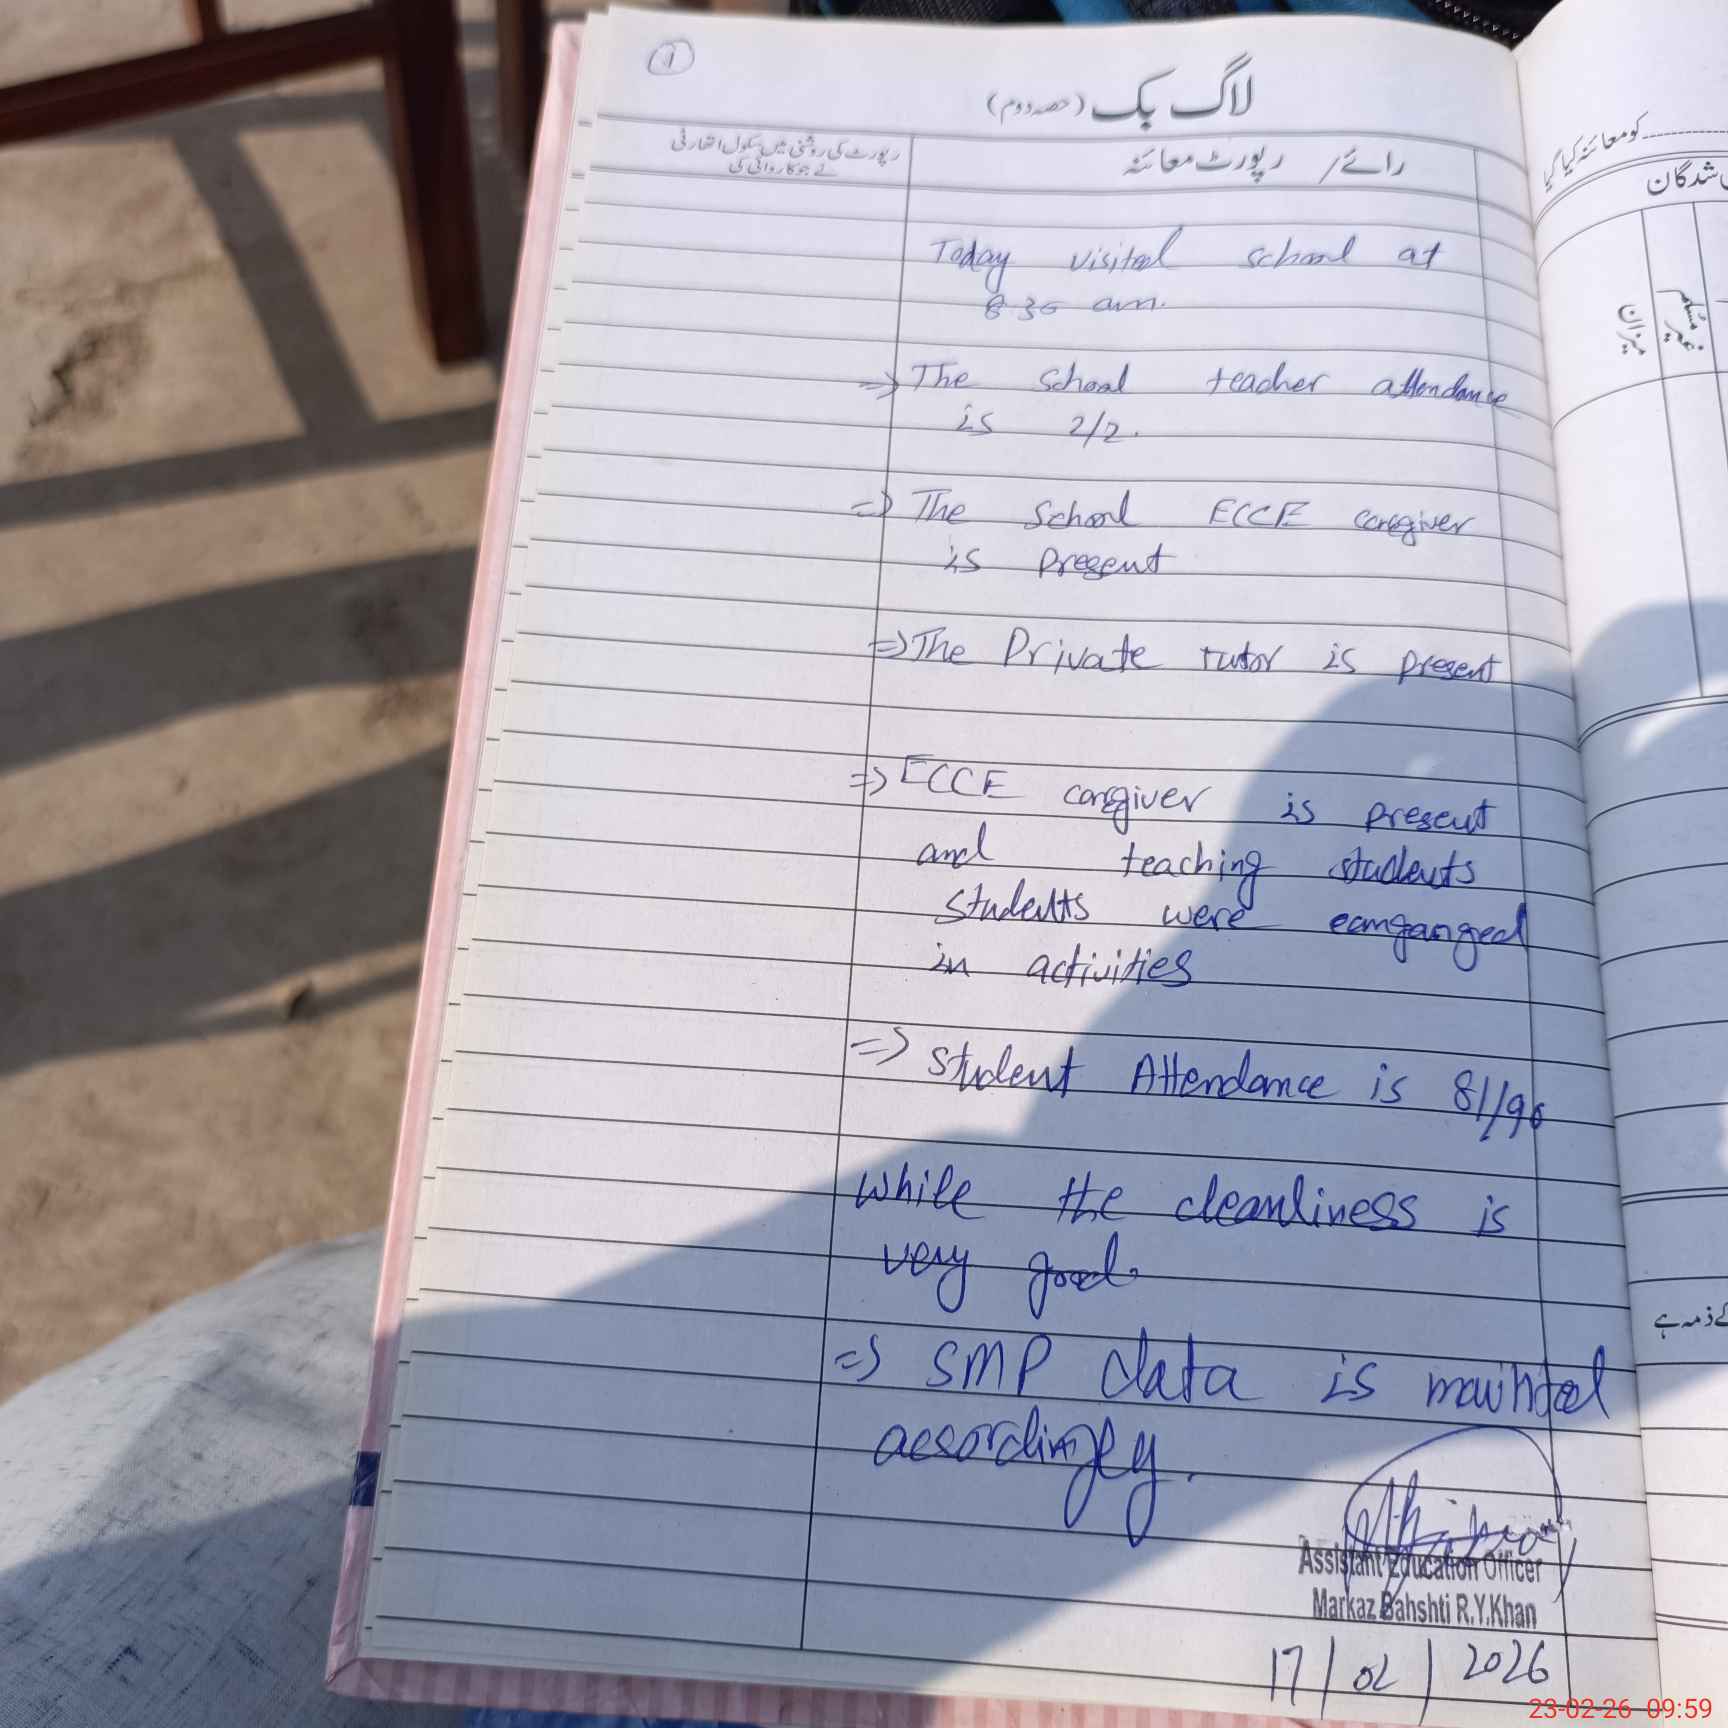 1
لاگ بک (حصہ دوم)
رائے / رپورٹ معائنہ
رپورٹ کی روشنی میں سکول اتھارٹی
نے جو کاروائی کی
Today visited school at
8:30 am.
=> The school teacher attendance
is 2/2.
=> The School ECCE caregiver
is present
=> The Private tutor is present
=> ECCE caregiver is present
and teaching students
students were eamganged
in activities
=> Student Attendance is 81/96
while the cleanliness is
very good.
=> SMP data is
accordingly.
Assistant Education Officer
Markaz Bahshti R.Y.Khan
17/02/2026
کو معائنہ کیا گیا
شدگان
غیر مسلم
میزان
کے ذمہ ہے
23-02-26 09:59